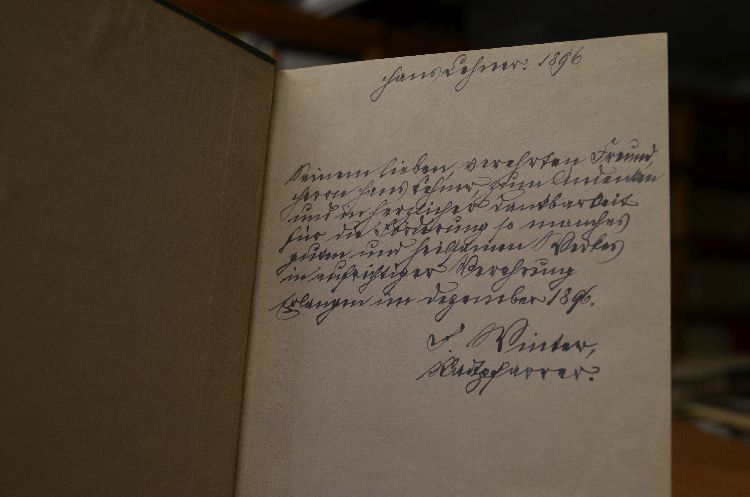 Hans Lehner. 1896
Seinem lieben, verehrten Freund,
Herrn Hans Lehner, zum Andenken
und in herzlicher Dankbarkeit
für die Förderung so manches
guten und heilsamen Werkes
in aufrichtiger Verehrung
Erlangen im Dezember 1896.
F. Winter,
Stadtpfarrer.